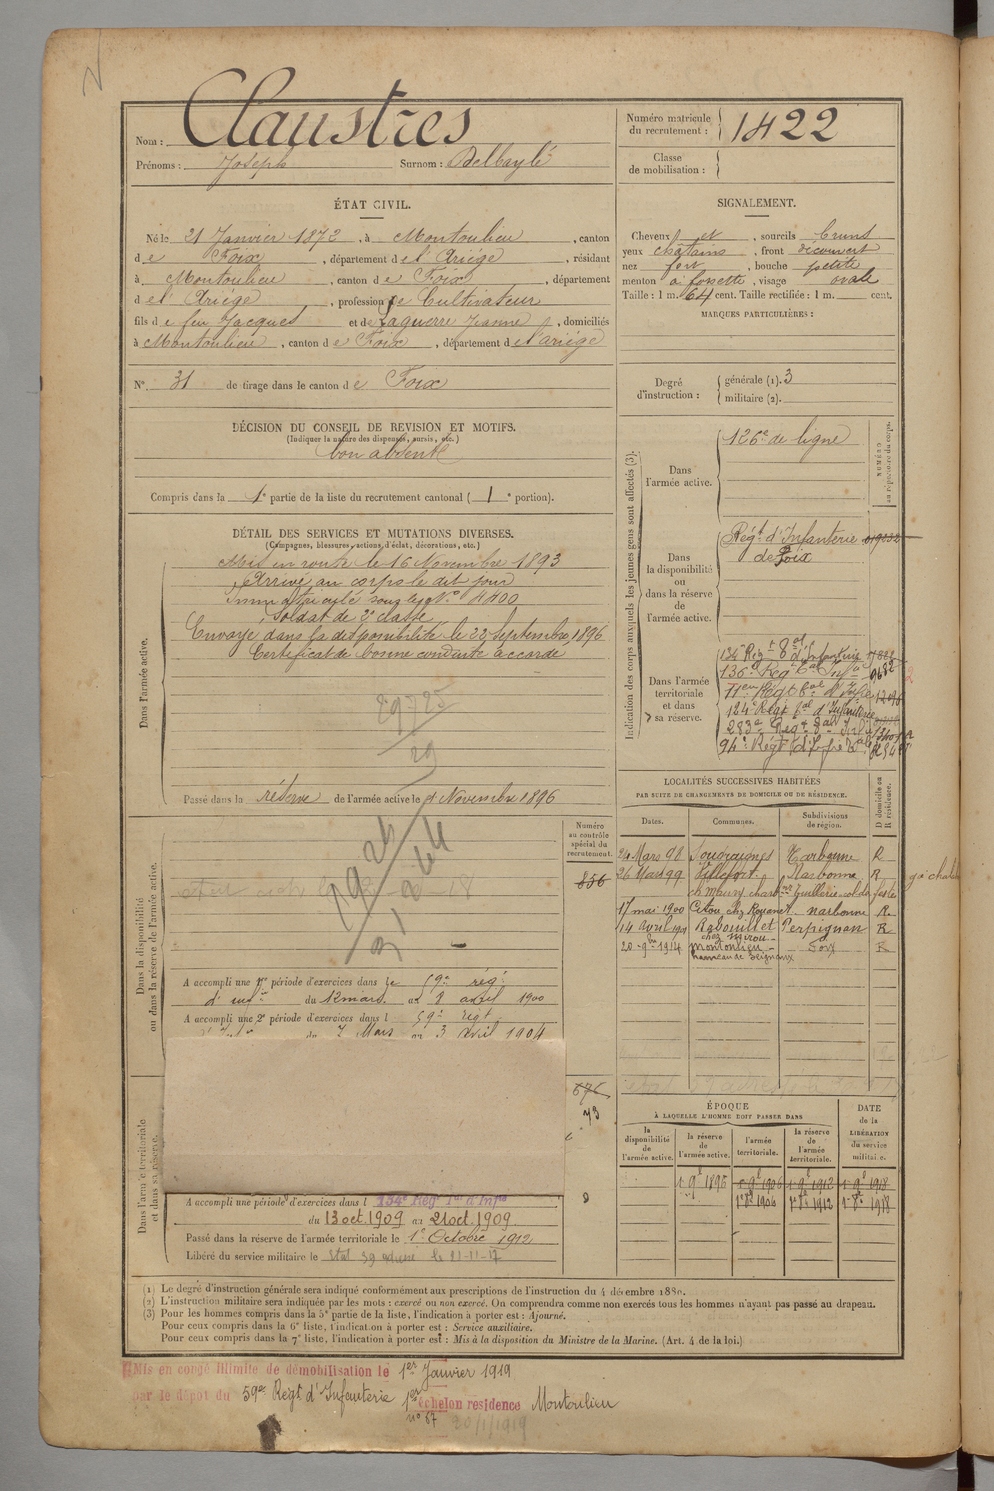 Nom : Claustres
Prénoms : Joseph Surnom : Delbaylé
Numéro matricule du recrutement : 1422
Classe de mobilisation :
ÉTAT CIVIL.
Né le 21 Janvier 1872, à Montoulieu, canton
de Foix, département de l'Ariège, résidant
à Montoulieu, canton de Foix, département
de l'Ariège, profession de Cultivateur
fils de feu Jacques et de Laguerre Jeanne, domiciliés
à Montoulieu, canton de Foix, département de l'ariège
N° 31 de tirage dans le canton de Foix
SIGNALEMENT.
Cheveux et, sourcils bruns
yeux châtains, front découvert
nez fort, bouche petite
menton à fossette, visage ovale
Taille : 1 m. 64 cent. Taille rectifiée : 1 m. cent.
MARQUES PARTICULIÈRES :
Degré d'instruction : générale (1). 3
militaire (2).
DÉCISION DU CONSEIL DE REVISION ET MOTIFS.
(Indiquer la nature des dispenses, sursis, etc.)
bon absent
Compris dans la 1e partie de la liste du recrutement cantonal ( 1 e portion).
DÉTAIL DES SERVICES ET MUTATIONS DIVERSES.
(Campagnes, blessures, actions d'éclat, décorations, etc.)
Dans l'armée active.
Mis en route le 16 Novembre 1893
Arrivé au corps le dit jour
Immatriculé sous le N° 4400
Soldat de 2e classe
Envoyé dans la disponibilité le 22 septembre 1896
Certificat de bonne conduite accordé
Passé dans la réserve de l'armée active le 1 Novembre 1896
Dans la disponibilité ou dans la réserve de l'armée active.
Numéro au contrôle spécial du recrutement.
856
A accompli une 1re période d'exercices dans le 59e rég.
d'infie du 12 mars au 8 avril 1900
A accompli une 2e période d'exercices dans l 59e régt
du 7 Mars au 3 avril 1904
676
73
Dans l'armée territoriale et dans sa réserve.
A accompli une période d'exercices dans l 134e Régt Tal d'Infie
du 13 oct. 1909 au 21 oct. 1909.
Passé dans la réserve de l'armée territoriale le 1er Octobre 1912
Libéré du service militaire le
Indication des corps auxquels les jeunes gens sont affectés (3).
NUMÉRO au répertoire du corps.
Dans l'armée active.
126e de ligne
Dans la disponibilité ou dans la réserve de l'armée active.
Régt d'Infanterie
de Foix
Dans l'armée territoriale et dans sa réserve.
134e Régt tal d'Infanterie
136e Régt tal Infie
LOCALITÉS SUCCESSIVES HABITÉES
PAR SUITE DE CHANGEMENTS DE DOMICILE OU DE RÉSIDENCE.
Dates. Communes. Subdivisions de région. D domicile ou R résidence.
24 Mars 98 Narbonne R
26 Mars 99 Villefort Narbonne R
17 mai 1900 Citou chez Rouanet Narbonne R
14 avril 1901 Rabouillet Perpignan R
20 - 9bre 1914 Montoulieu Foix R
hameau de Seignaux
ÉPOQUE
À LAQUELLE L'HOMME DOIT PASSER DANS
DATE de la LIBÉRATION du service militaire.
la disponibilité de l'armée active. la réserve de l'armée active. l'armée territoriale. la réserve de l'armée territoriale.
1 9e 1896 1 9e 1906 1 9e 1912 1 9e 1918
1 8e 1906 1 8e 1912 1 8e 1918
(1) Le degré d'instruction générale sera indiqué conformément aux prescriptions de l'instruction du 4 décembre 1889.
(2) L'instruction militaire sera indiquée par les mots : exercé ou non exercé. On comprendra comme non exercés tous les hommes n'ayant pas passé au drapeau.
(3) Pour les hommes compris dans la 5e partie de la liste, l'indication à porter est : Ajourné.
Pour ceux compris dans la 6e liste, l'indication à porter est : Service auxiliaire.
Pour ceux compris dans la 7e liste, l'indication à porter est : Mis à la disposition du Ministre de la Marine. (Art. 4 de la loi.)
Mis en congé illimité de démobilisation le 1er Janvier 1919
par le dépôt du 59e Régt d'Infanterie 1er échelon résidence Montoulieu
n° 87 20/1/1919